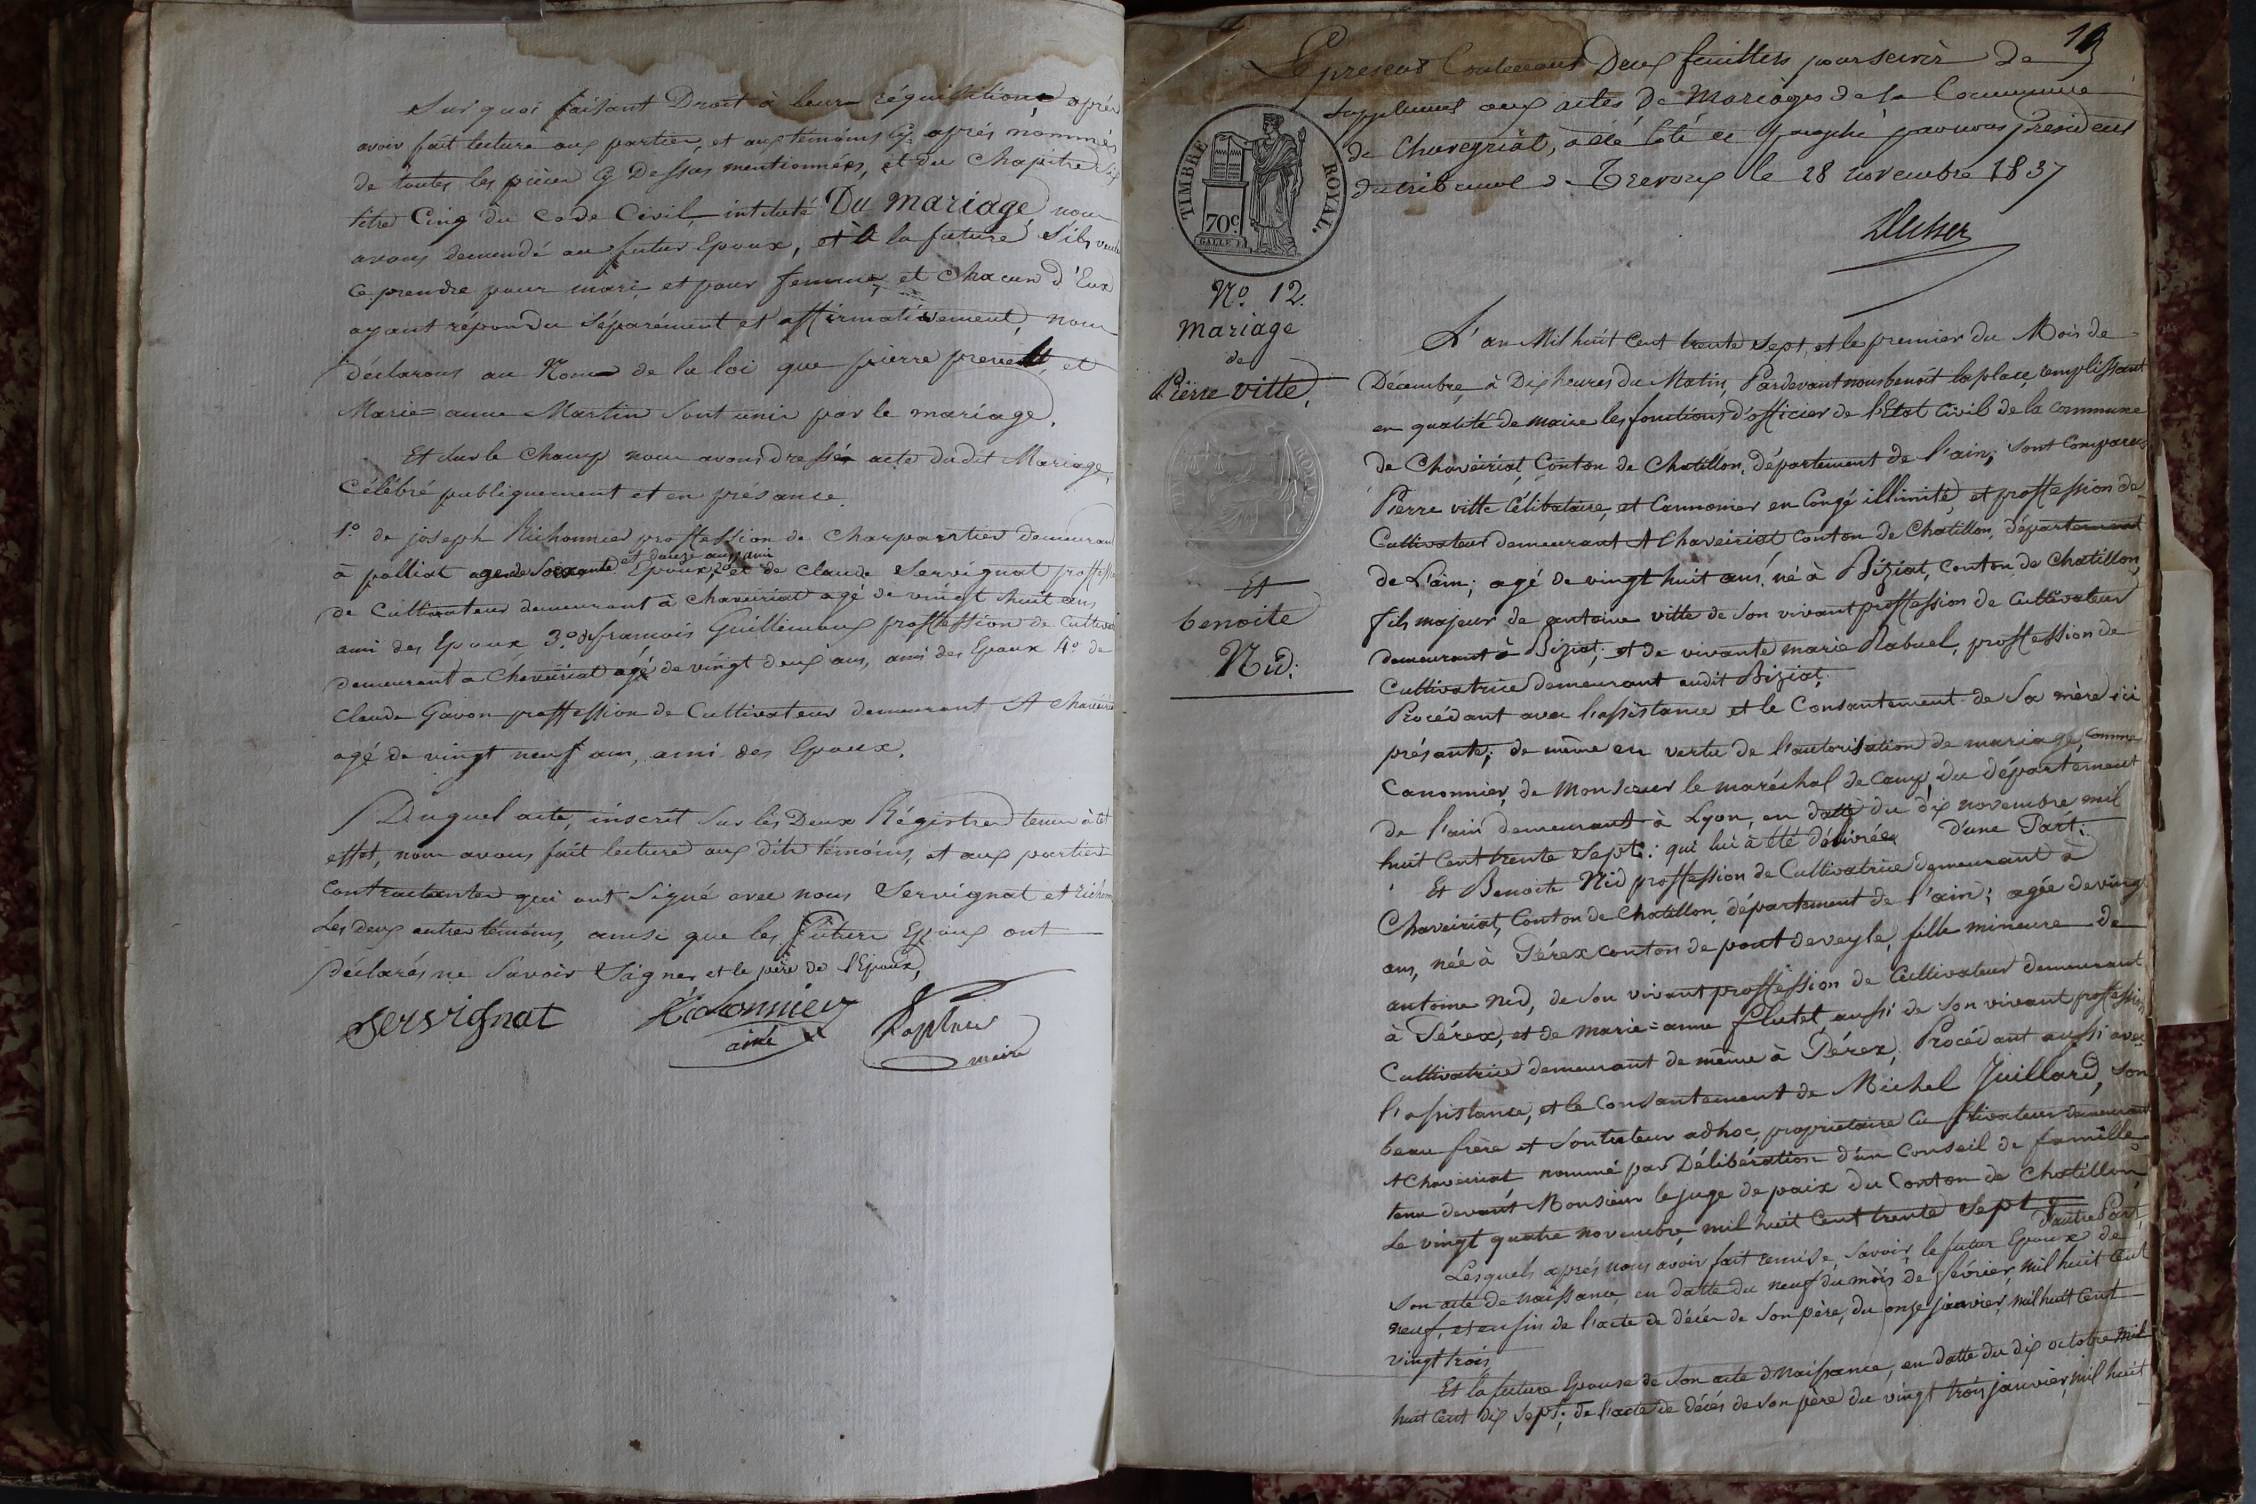 Sur quoi faisant Droit à leur réquisitions après
avoir fait lecture aux parties, et aux témoins Cy après nommés
de toutes les pièces Cy Dessus mentionnées, et du Chapitre Six
titre Cinq du Code Civil, intitulé Du Mariage, nous
avons demandé au futur Epoux, et à la future, s'ils veulent
ce prendre pour mari, et pour femme, et chacun d'Eux
ayant répondu séparément et affirmativement, nous
déclarons au Nom de la loi que pierre et
Marie=anne Martin sont unis par le mariage.
Et sur le Champ nous avons dressés acte dudit Mariage,
Célébré publiquement et en présance
1° de joseph Richonnier proffession de Charpantier demeurant
à polliat agé de Soixante Epoux, 2° et de Claude Servignat proffession
de Cultivateur demeurant à Chaveiriat agé de vingt huit ans
ami des Epoux 3° de françois Guillemaux proffession de Cultivateur
demeurant à Chaveiriat agé de vingt deux ans, ami des Epoux 4° de
Claude Gavon proffession de Cultivateur demeurant A Chaveiriat
agé de vingt neuf ans, ami des Epoux.
Duquel acte, inscrit sur lès Deux Régistres tenus à cet
effet, nous avons fait lecture aux dits témoins, et aux parties
Contractantes qui ont Signé avec nous Servignat et Richonnier
Les deux autres témoins, ainsi que les Futurs Epoux ont
Déclarés ne Savoir Signer et le père de l'Epoux,
Servignat Richonnier Laplace
ainé maire
19
Le present Contenant Deux feuillets pour servir de
supplement aux actes de Mariages de la Commune
de Chaveyriat, a été coté et paraphé par nous President
du tribunal de Trevoux le 28 novembre 1837
TIMBRE ROYAL.
70c.
N° 12.
Mariage
de
Pierre ville,
Et
benoite
Nid.
L'an Mil huit Cent trente sept, et le premier du Mois de
Décembre, à Dix heures du Matin, Pardevant nous benoit laplace, remplissant
en qualité de maire les fonctions d'officier de l'Etat Civil de la commune
de Chaveiriat, Conton de Chatillon, département de l'ain; sont Comparus
Pierre ville Célibataire, et Cannonier en Congé illimité, et proffession de
Cultivateur demeurant A Chaveiriat Conton de Chatillon, département
de L'ain; agé de vingt huit ans, né à Biziat, Conton de Chatillon,
fils majeur de antoine ville de son vivant proffession de Cultivateur
demeurant à Biziat, et de vivante marie Rabuel, proffession de
Cultivatrice demeurant audit Biziat,
Procédant avec l'assistance et le Consantement de Sa mère ici
présante; de même en vertu de l'autorisation de mariage, comme
Canonnier, de Monsieur le maréchal de camp, du département
de l'ain demeurant à Lyon, en datte du dix novembre mil
huit Cent trente sept: qui lui à été délivrée d'une Part.
Et Benoite Nid proffession de Cultivatrice demeurant à
Chaveiriat, Conton de Chatillon, département de l'ain; agée de vingt
ans, née à Pérex conton de pont de veyle, fille mineure de
antoine nid, de son vivant proffession de Cultivateur demeurant
à Pérex, et de marie=anne flutet aussi de son vivant proffession
Cultivatrice demeurant de même à Pérex, Procédant aussi avec
l'assistance, et le Consantement de Michel Juillard, son
beau frère et son tuteur adhoc, propriétaire Cultivateur demeurant
A Chaveiriat nommé par Délibération d'un Conseil de famille
tenu devant Monsieur le juge de paix du Conton de Chatillon
Le vingt quatre novembre mil huit Cent trente sept
d'autre Part,
Lesquels après nous avoir fait remise, savoir, le futur Epoux de
son acte de naissance, en datte du neuf du mois de février, mil huit cent
neuf, et enfin de l'acte de décès de son père, du onze janvier, mil huit cent
vingt trois,
Et la future Epouse de son acte de Naissance, en datte du dix octobre mil
huit Cent dix sept; de l'acte de décés de son père du vingt trois janvier, mil huit